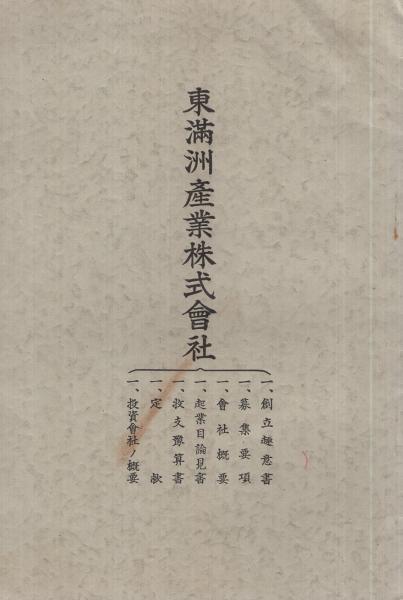 東滿洲產業株式會社
一、創立趣意書
一、募集要項
一、會社概要
一、起業目論見書
一、收支豫算書
一、定款
一、投資會社ノ概要